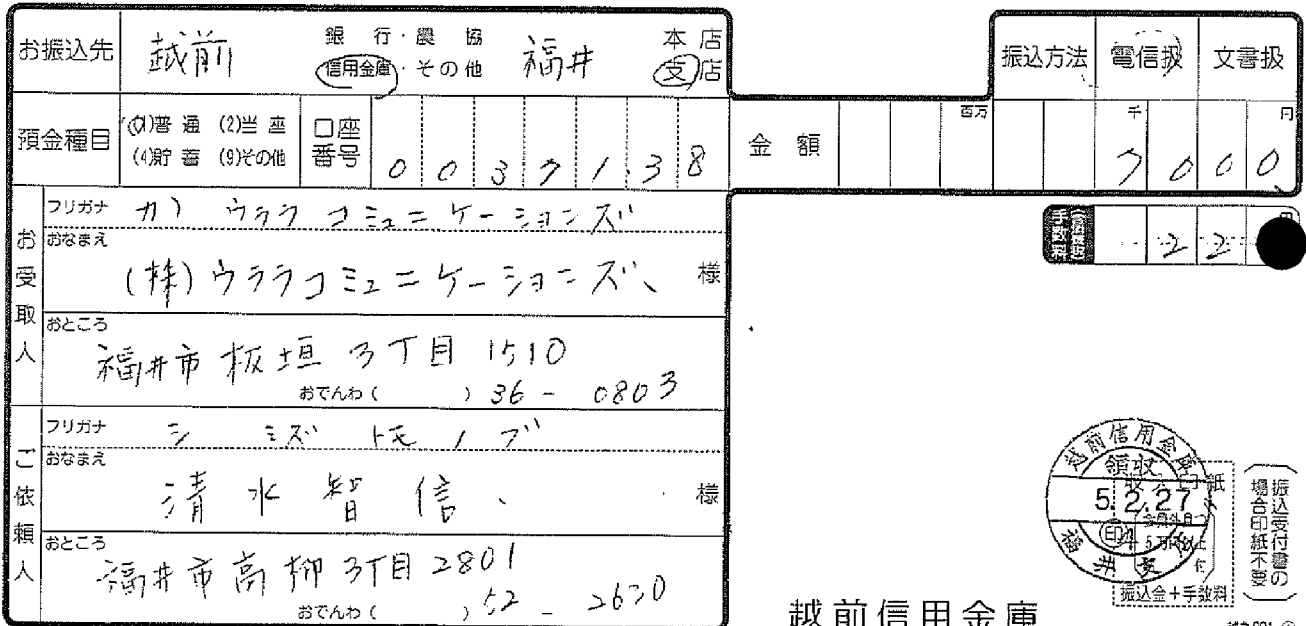 お振込先 越前 銀行・農協 信用金庫・その他 福井 本店 支店
振込方法 電信扱 文書扱
預金種目 (1)普通 (2)当座 (4)貯蓄 (9)その他 口座番号 0037138
金額 百万 千 円 7000
フリガナ カ) ウララコミュニケーションズ
手数料 22
お受取人
おなまえ (株)ウララコミュニケーションズ 様
おところ 福井市板垣3丁目1510
おでんわ( ) 36-0803
フリガナ シミズトモノブ
ご依頼人
おなまえ 清水智信 様
おところ 福井市高柳3丁目2801
おでんわ( ) 52-2630
越前信用金庫
領収
5.2.27
福井支
振込金+手数料
振込受付書の場合印紙不要
越前信用金庫